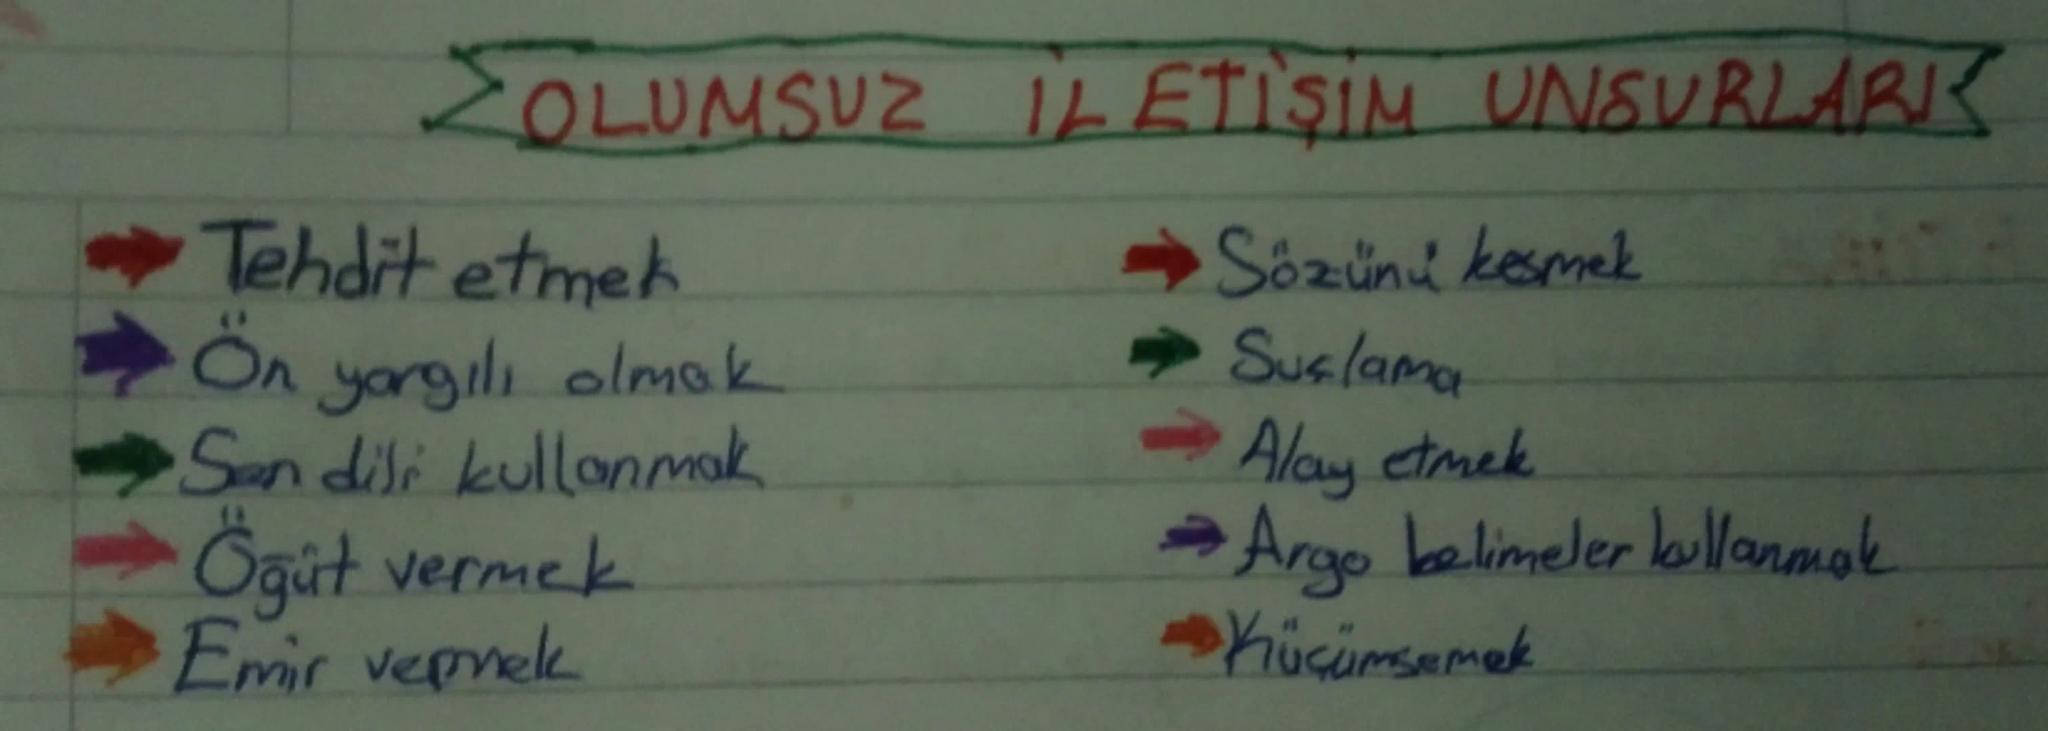 OLUMSUZ İLETİŞİM UNSURLARI
Tehdit etmek
Ön yargılı olmak
Sen dili kullanmak
Öğüt vermek
Emir vermek
Sözünü kesmek
Suçlama
Alay etmek
Argo kelimeler kullanmak
Küçümsemek